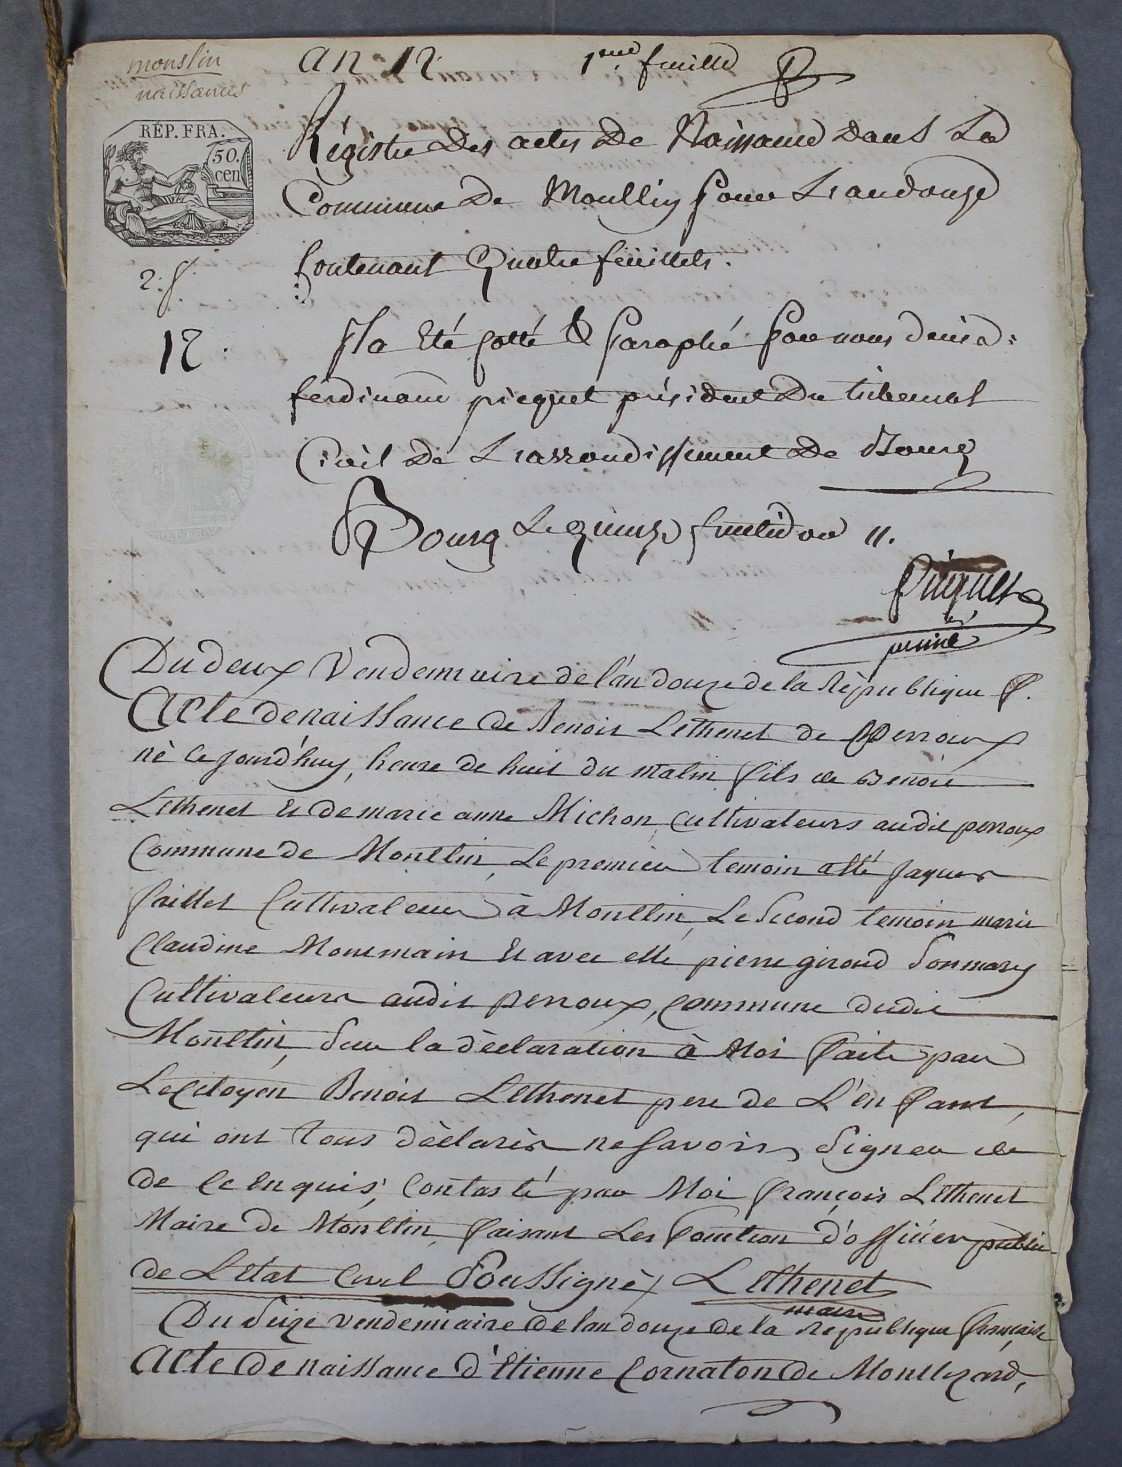 monslin
naissances
an 12.
1ere feuille
RÉP. FRA.
50.
cen
Régistre des actes de Naissance dans La
Commune de Moullin pour L'an douze
Contenant Quatre feuillets.
2.f.
12.
Il a Eté Cotté & Paraphé Par nous denis-
ferdinand picquet président du tribunal
Civil de L'arrondissement de Bourg
Bourg Le quinze fructidor 11.
Picquet
Du deux Vendemiaire de l'an douze de la République f.
Acte de naissance de Benoit Lethenet de perroux
né ce jourd'huy, heure de huit du matin fils de Benoit
Lethenet Et de marie anne Michon, cultivateurs audit perroux
Commune de Moullin, Le premier temoin atté jaques
faillet Cultivateur à Moullin, Le Second temoin marie
Claudine Monmain Et avec elle pierre giroud Son mary
Cultivateurs audit perroux, commune dudit
Moullin, Sur la déclaration à Moi faite par
Le Citoyen Benoit Lethenet pere de L'enfant,
qui ont tous déclarés ne Savoir Signer de
de ce Enquis, Contasté par Moi françois Lethenet
Maire de Moullin, faisant Les fonction d'officier public
de L'état Civil Soussigné, Lethenet
maire
Du Seize vendemiaire de l'an douze de la République française
Acte de naissance d'Etienne Cornaton de Montlezard,